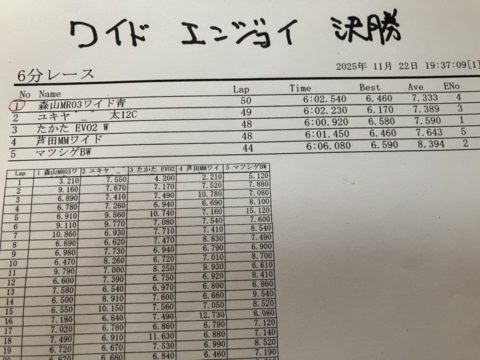 ワイド エンジョイ 決勝
2025年 11月 22日 19:37:09[1]
6分レース
No Name Lap Time Best Ave ENo
1 森山MR03ワイド青 50 6:02.540 6.460 7.333 4
2 ユキヤ _ 太12C 49 6:02.230 6.170 7.389 3
3 たかた EVO2 W 48 6:00.920 6.580 7.590 1
4 芦田MMワイド 48 6:01.450 6.460 7.643 5
5 マツシゲBW 44 6:06.080 6.590 8.394 2
Lap 1 森山MR03ワ 2 ユキヤ _ 3 たかた EVO2 4 芦田MMワイ 5 マツシゲBW
1 3.210 7.550 4.200 2.210 5.120
2 9.160 7.670 7.170 7.520 7.880
3 6.890 7.410 7.490 10.780 7.080
4 6.780 7.260 6.940 6.690 8.100
5 6.910 9.560 10.740 7.160 15.120
6 9.110 9.770 7.080 7.540 7.600
7 10.860 6.930 7.710 7.410 8.540
8 6.690 6.620 7.470 8.830 7.490
9 6.980 7.730 6.940 6.790 6.900
10 6.470 8.260 6.720 7.010 8.700
11 9.790 7.000 8.250 9.930 6.610
12 6.600 7.390 6.750 6.920 8.410
13 7.580 6.540 6.840 6.820 6.860
14 6.500 8.910 7.600 6.660 9.540
15 6.550 10.150 7.560 7.050 8.520
16 7.180 6.840 7.490 12.730 6.080
17 7.020 6.780 6.860 6.790 7.120
18 7.490 6.910 11.630 6.880 7.140
19 6.720 6.670 7.530 6.460 8.520
6.870 6.680 6.840 7.190